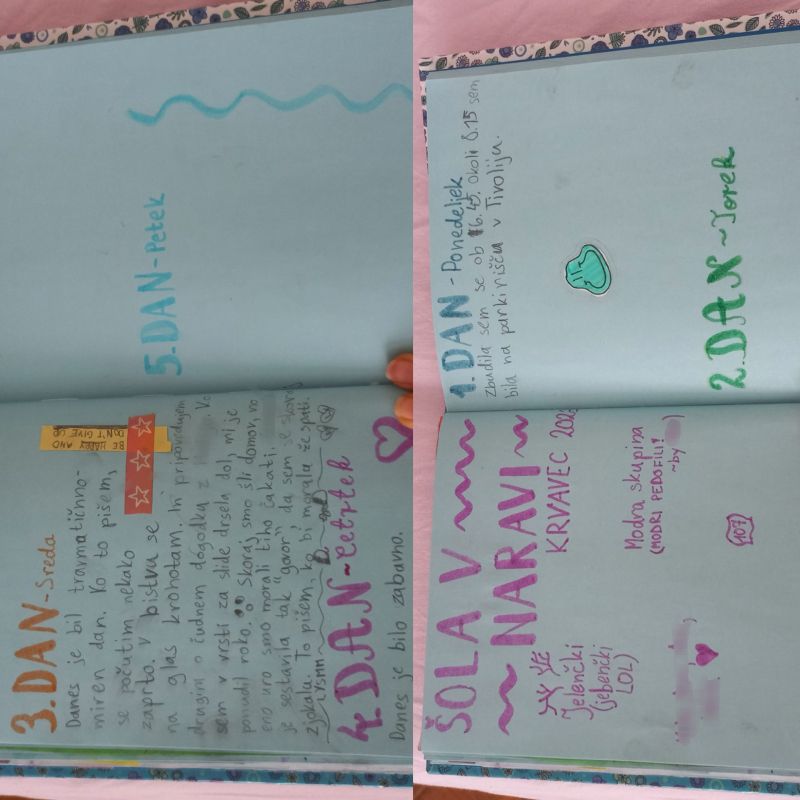 ŠOLA V
~ NARAVI ~
KRVAVEC
Jelenčki
(jebenčki
LOL)
Modra skupina
(MODRI PEDOFILI!
~by
107
1. DAN - Ponedeljek
zbudila sem se ob 6.45. Okoli 8.15 sem
bila na parkirišču v Tivoliju.
2. DAN ~ Torek
3. DAN - Sreda
Danes je bil travmatično-
miren dan. Ko to pišem,
se počutim nekako
zaprto. V bistvu se
na glas krohotam in pripovedujem
drugim o čudnem dogodku z
sem v vrsti za slide drsela dol, mi je
ponudil roko. Skoraj smo šli domov, no
eno uro smo morali tiho čakati.
je sestavila tak "govor", da sem se skoraj
zjokala. To pišem, ko bi morala že spati.
LYSMM
BE HAPPY AND
DON'T GIVE UP
4. DAN ~ Četrtek
Danes je bilo zabavno.
5. DAN - Petek